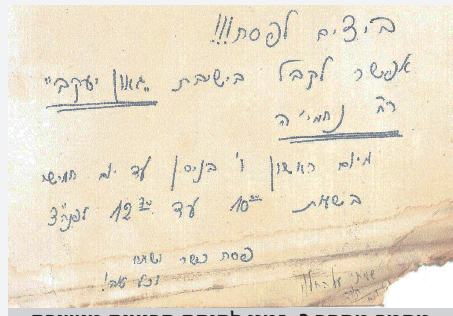 ביצים לפסח!!!
אפשר לקבל בישיבת "גאון יעקב"
רח' נחמי' ה
מיום ראשון ו' בניסן עד יום חמישי
בשעות 10⁰⁰ עד 12³⁰ לפנה"צ
פסח כשר ושמח
וכל טוב!